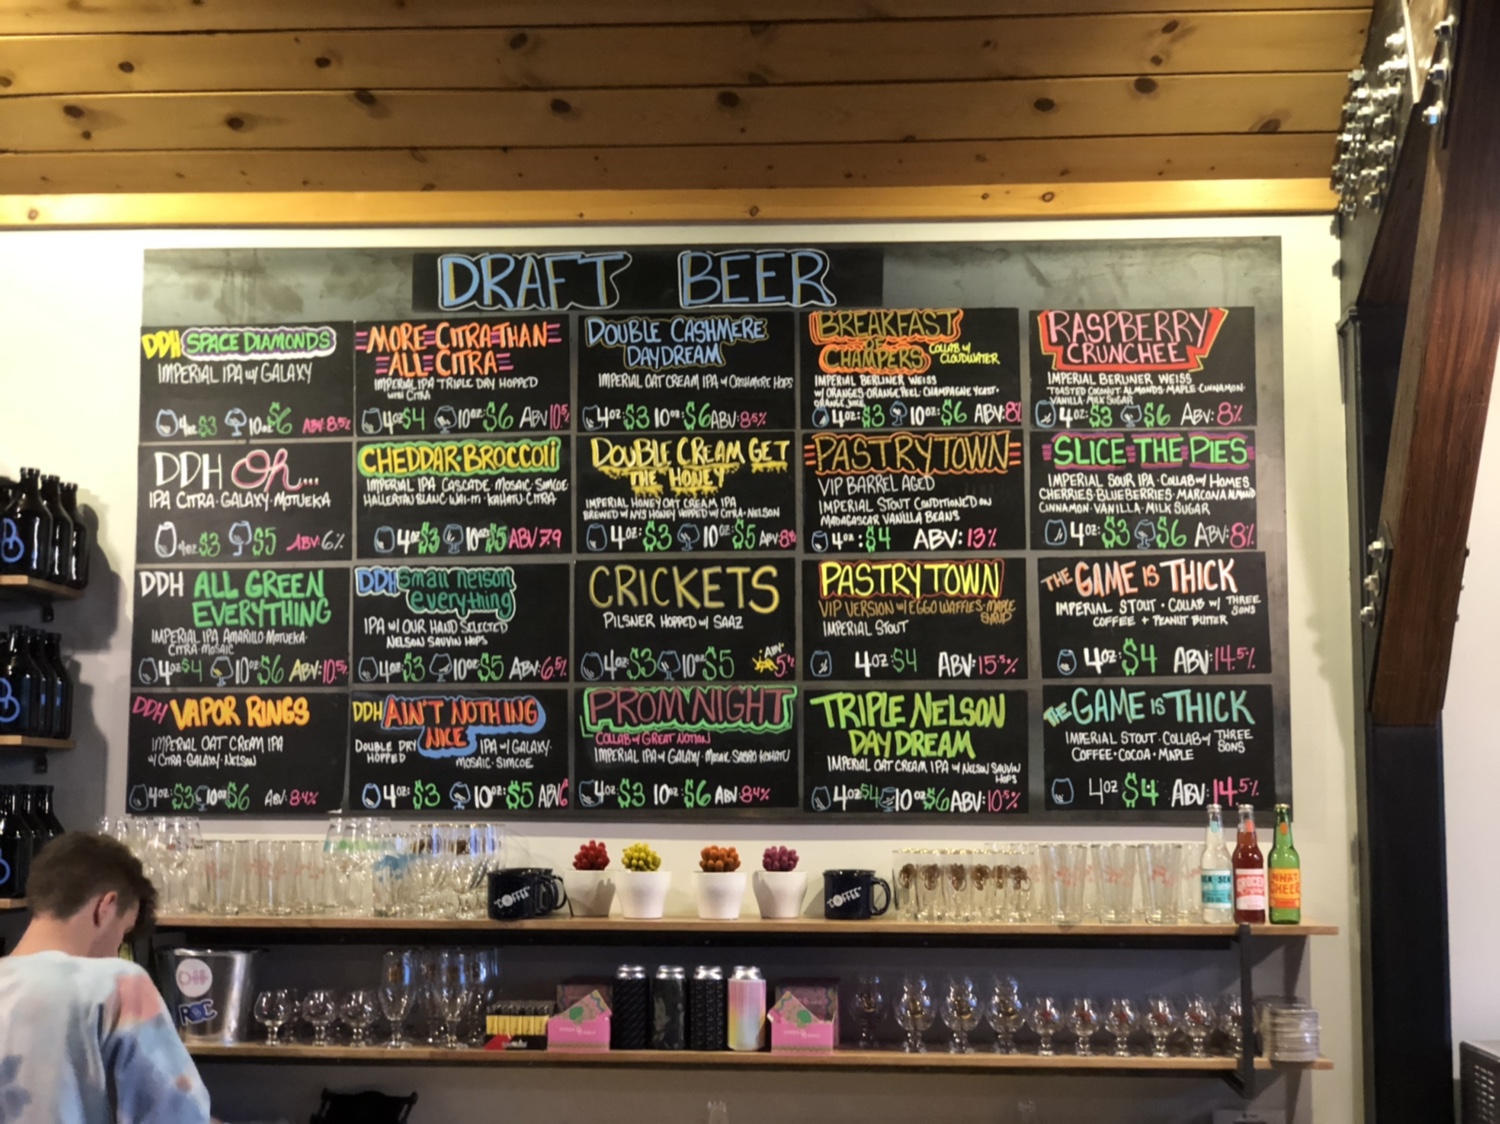 DRAFT BEER
DDH SPACE DIAMONDS
IMPERIAL IPA w/ GALAXY
4oz $3 10oz $6 ABV: 8.5%
MORE CITRA THAN
ALL CITRA
IMPERIAL IPA TRIPLE DRY HOPPED
WITH CITRA
4oz $4 10oz: $6 ABV 10.5%
DOUBLE CASHMERE
DAYDREAM
IMPERIAL OAT CREAM IPA w/ CASHMERE HOPS
4oz: $3 10oz: $6 ABV: 8.5%
BREAKFAST
OF
CHAMPERS
COLLAB w/
CLOUDWATER
IMPERIAL BERLINER WEISS
w/ ORANGES · ORANGE PEEL · CHAMPAGNE YEAST ·
ORANGE JUICE
4oz: $3 10oz: $6 ABV: 8%
RASPBERRY
CRUNCHEE
IMPERIAL BERLINER WEISS
TOASTED COCONUT · ALMONDS · MAPLE · CINNAMON ·
VANILLA · MILK SUGAR
4oz: $3 $6 ABV: 8%
DDH Oh...
IPA CITRA · GALAXY · MOTUEKA
4oz $3 $5 ABV: 6%
CHEDDAR BROCCOLI
IMPERIAL IPA CASCADE · MOSAIC · SIMCOE
HALLERTAU BLANC · WAI-ITI · KOHATU · CITRA
4oz: $3 10oz: $5 ABV 7.9
DOUBLE CREAM GET
THE HONEY
IMPERIAL HONEY OAT CREAM IPA
BREWED w/ NYS HONEY HOPPED w/ CITRA · NELSON
4oz: $3 10oz $5 ABV: 8%
PASTRYTOWN
VIP BARREL AGED
IMPERIAL STOUT CONDITIONED ON
MADAGASCAR VANILLA BEANS
4oz: $4 ABV: 13%
SLICE THE PIES
IMPERIAL SOUR IPA · COLLAB w/ HOMES
CHERRIES · BLUEBERRIES · MARCONA ALMOND
CINNAMON · VANILLA · MILK SUGAR
4oz: $3 $6 ABV: 8%
DDH ALL GREEN
EVERYTHING
IMPERIAL IPA AMARILLO MOTUEKA ·
CITRA · MOSAIC
4oz $4 10oz $6 ABV: 10.5%
DDH small nelson
everything
IPA w/ OUR HAND SELECTED
NELSON SAUVIN HOPS
4oz: $3 10oz: $5 ABV: 6.5%
CRICKETS
PILSNER HOPPED w/ SAAZ
4oz: $3 10oz $5 ABV: 5%
PASTRYTOWN
VIP VERSION w/ EGGO WAFFLES · MAPLE
SYRUP
IMPERIAL STOUT
4oz $4 ABV: 15.5%
THE GAME IS THICK
IMPERIAL STOUT · COLLAB w/ THREE
SONS
COFFEE + PEANUT BUTTER
4oz: $4 ABV: 14.5%
DDH VAPOR RINGS
IMPERIAL OAT CREAM IPA
w/ CITRA · GALAXY · NELSON
4oz: $3 10oz $6 ABV: 8.4%
DDH AIN'T NOTHING
NICE
DOUBLE DRY
HOPPED
IPA w/ GALAXY ·
MOSAIC · SIMCOE
4oz: $3 10oz: $5 ABV 6
PROM NIGHT
COLLAB w/ GREAT NOTION
IMPERIAL IPA w/ GALAXY · MOSAIC SABRO KOHATU
4oz: $3 10oz: $6 ABV: 8.4%
TRIPLE NELSON
DAYDREAM
IMPERIAL OAT CREAM IPA w/ NELSON SAUVIN
HOPS
4oz $4 10oz $6 ABV: 10.5%
THE GAME IS THICK
IMPERIAL STOUT · COLLAB w/ THREE
SONS
COFFEE · COCOA · MAPLE
4oz $4 ABV: 14.5%
COFFEE
COFFEE
WHAT
CHEER
ROC